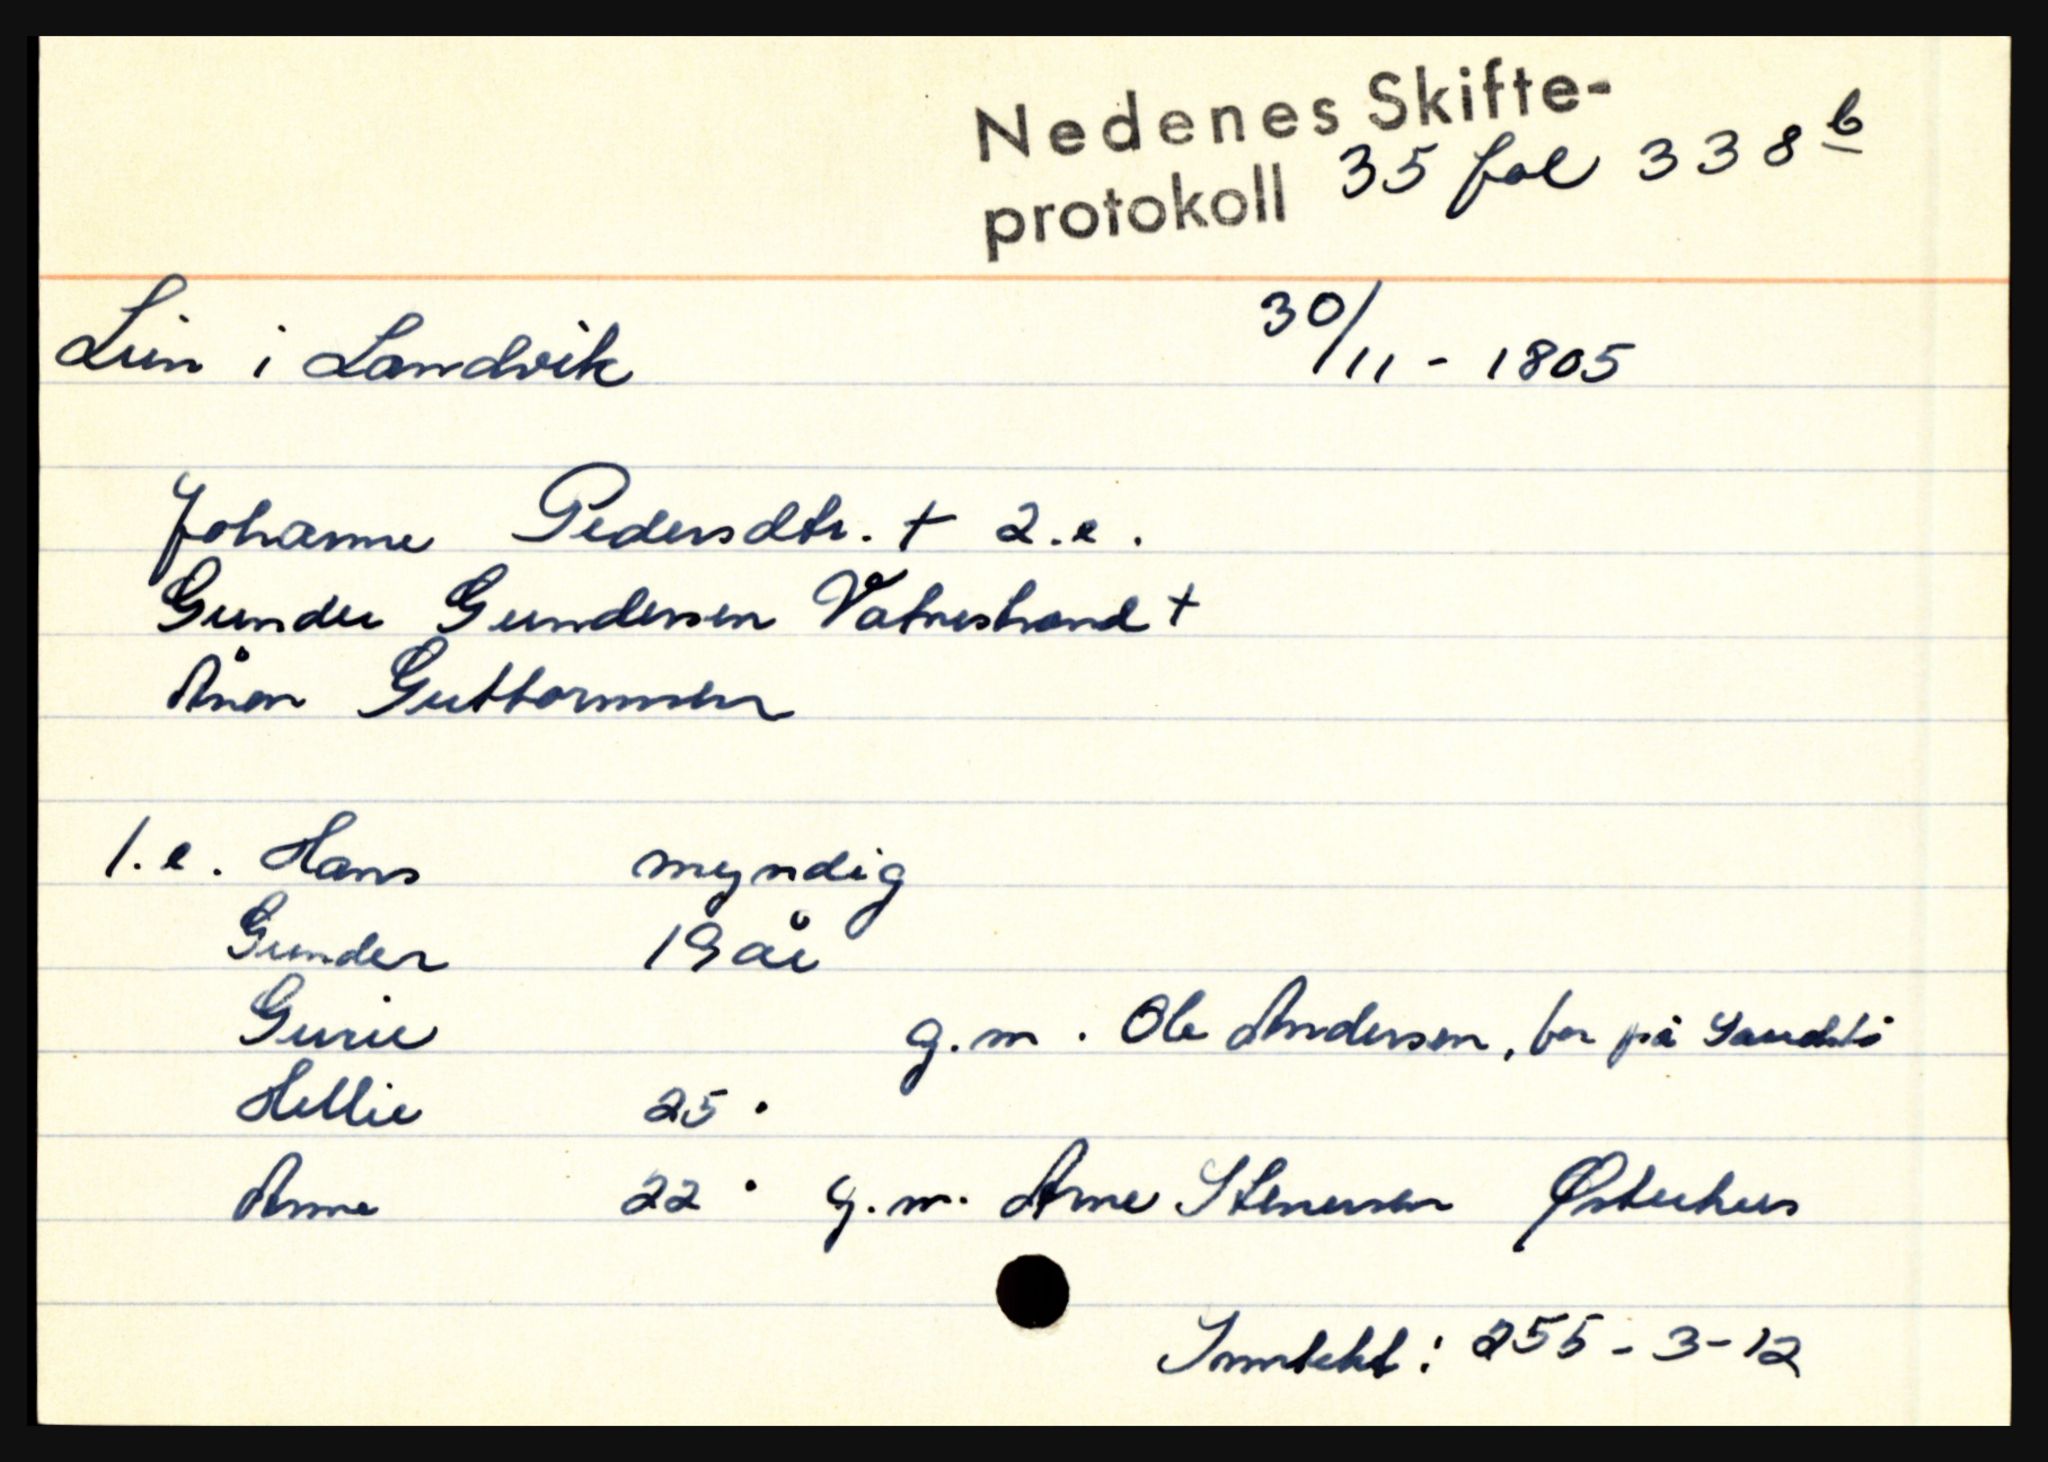 Nedenes Skifte-
protokoll 35 fol 338 b
Lien i Landvik 30/11 - 1805
Johanne Pedersdtr. + 2.e.
Gunder Gundersen Vatnestrand +
Ånen Guttormsen
1.e. Hans myndig
Gunder 19 år
Gurie g.m. Ole Andersen, bor på
Hellie 25 "
Anne 22 " g.m. Arne Stenersen Østerhus
Inntekt: 255-3-12